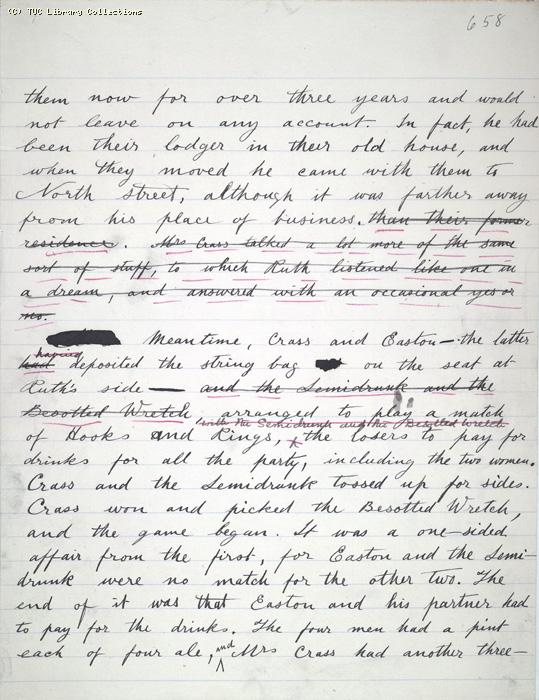 (C) TUC Library Collections
658
them now for over three years and would
not leave on any account. In fact, he had
been their lodger in their old house, and
when they moved he came with them to
North street, although it was farther away
from his place of business. than their former
residence. Mrs Crass talked a lot more of the same
sort of stuff, to which Ruth listened like one in
a dream, and answered with an occasional yes or
no.
Meantime, Crass and Easton — the latter
having
had deposited the string bag on the seat at
Ruth's side — and the Semidrunk and the
Besotted Wretch arranged to play a match
with the Semidrunk and the Besotted Wretch
of Hooks and Rings, the losers to pay for
drinks for all the party, including the two women.
Crass and the Semidrunk tossed up for sides.
Crass won and picked the Besotted Wretch,
and the game began. It was a one-sided
affair from the first, for Easton and the Semi-
drunk were no match for the other two. The
end of it was that Easton and his partner had
to pay for the drinks. The four men had a pint
each of four ale, and Mrs Crass had another three-